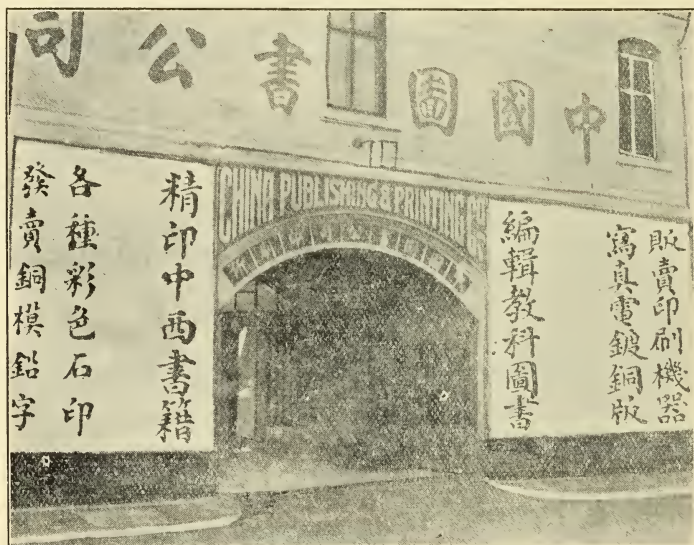 中國圖書公司
CHINA PUBLISHING & PRINTING CO
販賣印刷機器
寫真電鍍銅版
編輯教科圖書
精印中西書籍
各種彩色石印
發賣銅模鉛字